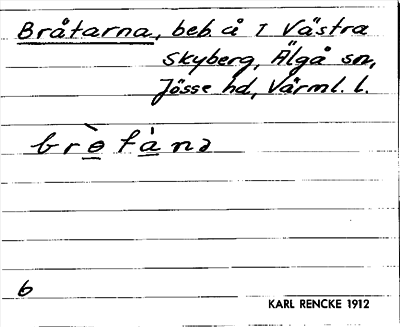 Bråtarna, beb. å 1 Västra
Skyberg, Älgå sn,
Jösse hd, Värml. l.
brɵ̀tánə
6
KARL RENCKE 1912